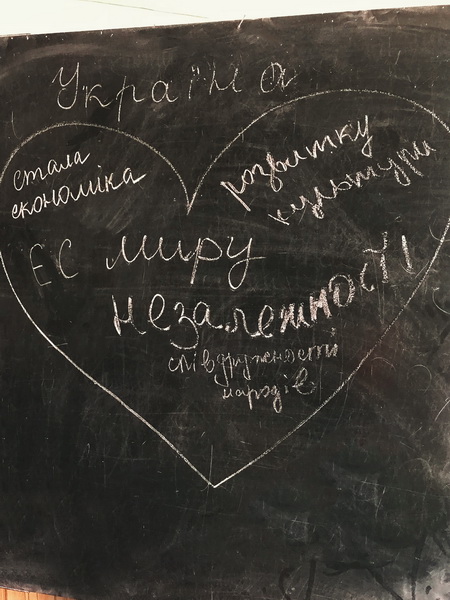 Україна
стала
економіка
розвитку
культури
ЄС миру
незалежності
співдружності
народів